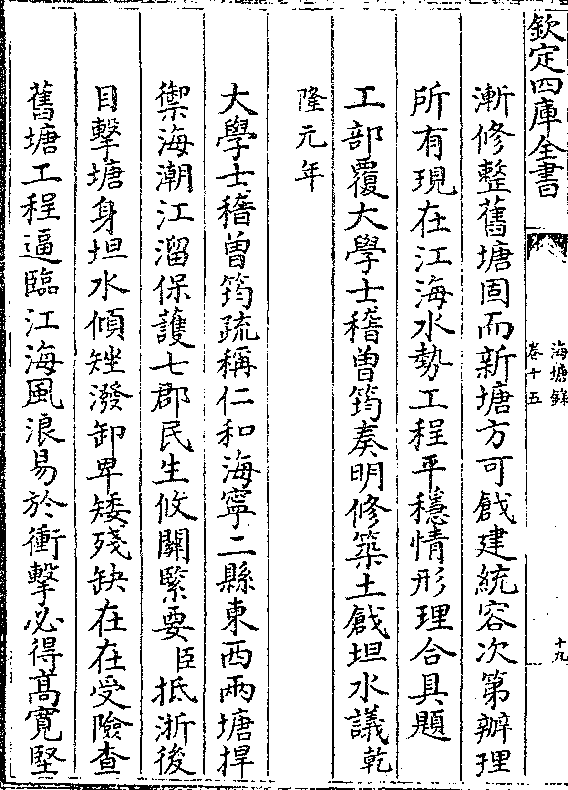 欽定四庫全書
海塘錄
卷十五
十九
漸修整舊塘固而新塘方可戧建統容次第辦理
所有現在江海水勢工程平穩情形理合具題
工部覆大學士稽曾筠奏明修築土戧坦水議乾
隆元年
大學士稽曾筠疏稱仁和海寧二縣東西兩塘捍
禦海潮江溜保護七郡民生攸關緊要臣抵浙後
目擊塘身坦水傾矬潑卸卑矮殘缺在在受險查
舊塘工程逼臨江海風浪易於衝擊必得高寬堅